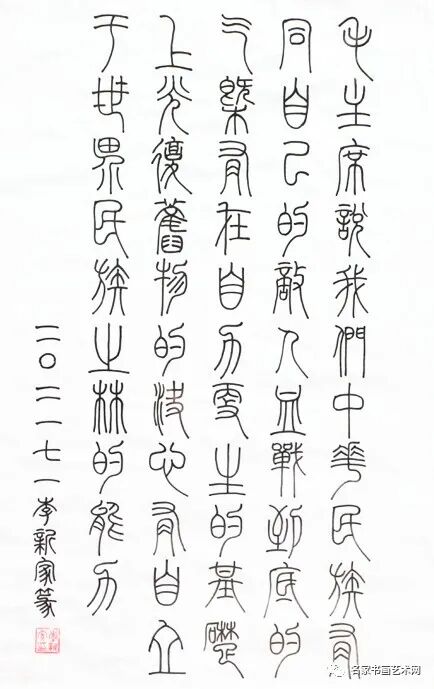 毛主席說我們中華民族有
同自己的敵人血戰到底的
气槩有在自力更生的基礎
上光復舊物的決心有自立
于世界民族之林的能力
二〇二一七一李新家篆
名家书画艺术网